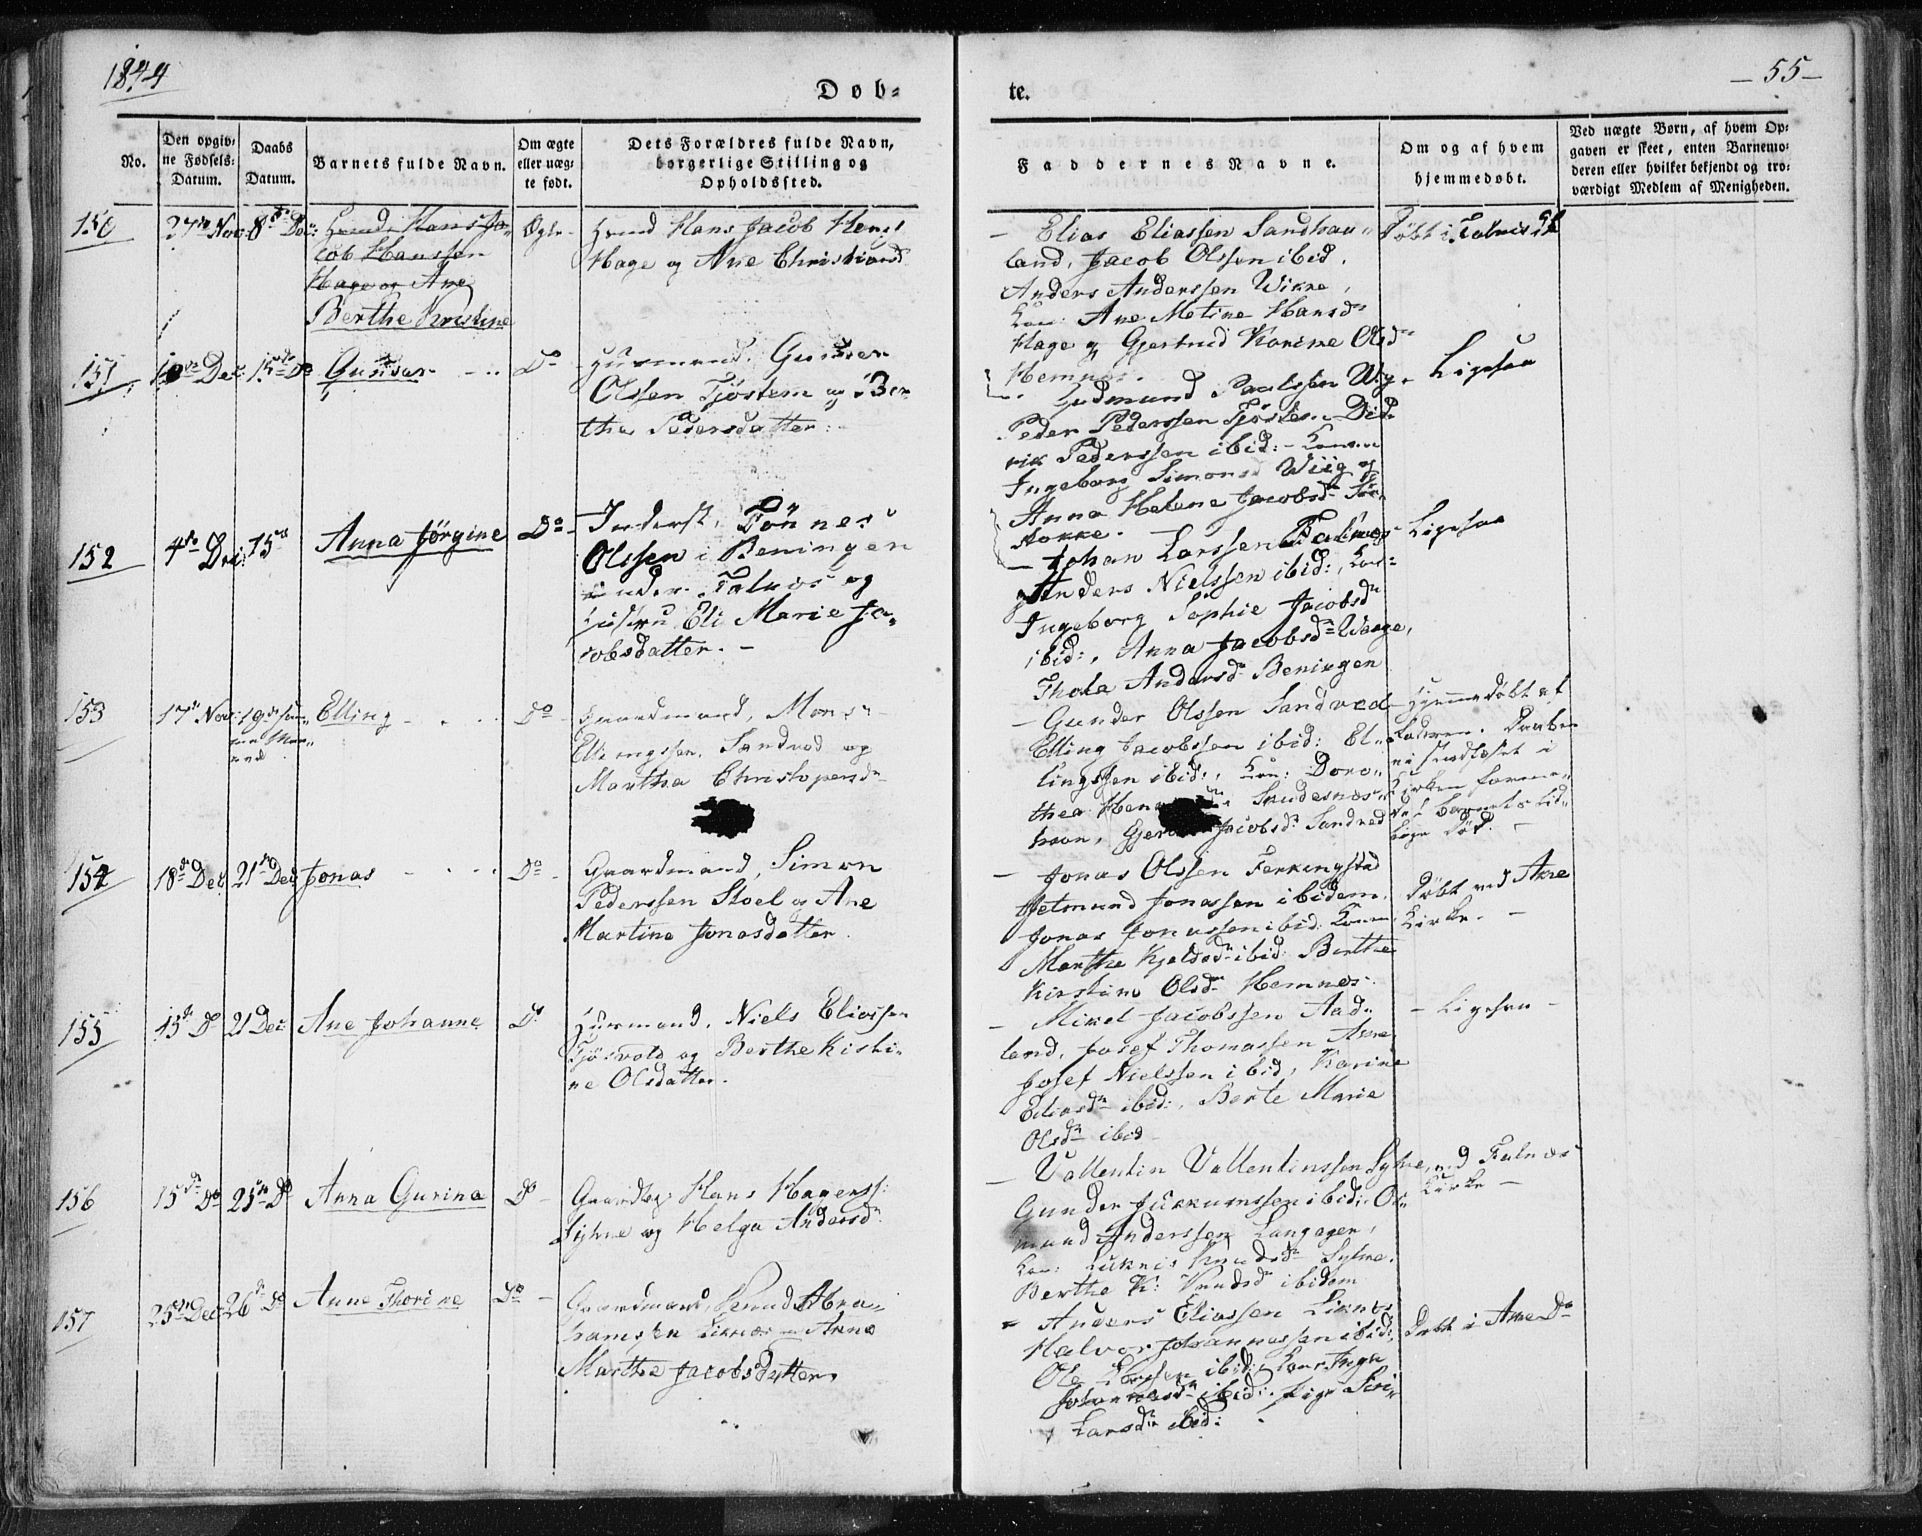 1844
Døb-
te.
-55-
No.
Den opgiv-
ne Fødsels-
Datum.
Daabs
Datum.
Barnets fulde Navn.
Om ægte
eller uæg-
te født.
Dets Forældres fulde Navn,
borgerlige Stilling og
Opholdssted.
Faddernes Navne.
Om og af hvem
hjemmedøbt.
Ved uægte Børn, af hvem Op-
gaven er skeet, enten Barnemo-
deren eller hvilket bekjendt og tro-
værdigt Medlem af Menigheden.
150
27de Nov:
8de Dec:
Hans Ja-
cob Hanssen
Hage og Ane
Berthe Kristine
Ægte
Hans Jacob Hens
Hage og Ane Christians
- Elias Eliassen Sandhau-
land, Jacob Olssen ibid.
Anders Anderssen Wikre,
Kon: Ane Metine Hansdr
Hage og Gjertrud Karine Olsd
Hemnes.
Døbt i Falnæs
151
Dec
15de Do
Gunder
Do
Huusmand. Gunder
Olssen Tjøstem og Ber-
the Pedersdatter.
Gudmund Paulssen Wig.
Peder Pederssen Tjøstem. Did-
rik Pederssen ibid: - Konen
Ingeborg Simonsd Wiig og
Anna Helene Jacobsd
Stokke.
Ligesaa
152
4de Dec:
15de
Anna Jørgine
Do
Inderst, Tönnes
Olssen i Beningen
under Falnæs og
Hustru Eli Marie Ja-
cobsdatter. -
- Johan Larssen Falnæs
Anders Nielssen ibid:, Kon:
Ingeborg Sophie Jacobsdr
ibid:, Anna Jacobsdr Waage,
Thole Andersdr Beningen
Ligesaa
153
17de Nov:
19de
Elling
Do
Gaardmand, Mons
Ellingssen, Sandved og
Martha Christophersdr
- Gunder Olssen Sandved
Elling Jacobssen ibid: El-
lingssen ibid:, Kon: Doro-
thea Skudesnæs-
havn, Jacobsdr Sandved
Hjemmedøbt af
Faderen. Daaben
ei stadfæstet i
Kirken formedelst barnets tid-
lige død. -
154
18de Dec
21de Dec
Jonas
Do
Gaardmand, Simon
Pederssen Stoel og Ane
Martine Jonasdatter.
- Jonas Olssen Ferkingstad
Hetmund Jonassen ibidem.
Jonas Jonassen ibid. Konen
Marthe Kjelsdr ibid: Berthe
Kirstine Olsdr Hemnes.
Døbt ved Akre
Kirke. -
155
15de Do
21 Dec
Ane Johanne
Do
Huusmand, Niels Eliassen
Tjøsvold og Berthe Kisti-
ne Olsdatter.
- Mikel Jacobssen Aad-
land, Josef Thomassen Akre
Josef Nielssen ibid, Karine
Eliasdr ibid:, Berte Marie
Olsdr ibid
- Ligesaa -
156
15de Do
25de Do
Anna Gurina
Do
Gaardbr: Hans Hagenss:
Syhre og Helga Andersdr
- Vallentin Vallentinssen Syhre,
Gunder ibid: Os-
mund Anderssen Langager,
Kon: Knudsdr Syhre.
Berthe K: Knudsdr ibidem
ved Falnæs
Kirke -
157
25de Dec
26de Do
Anne Thorine
Do
Gaardmand, Knud Abra-
hamssen Liknes og Anne
Marthe Jacobsdatter.
- Anders Eliassen Liknes
Halvor Johannessen ibid:
Ole Larssen ibid: Kon: Inga
Johannesdr ibid: Pige Siri
Larsdr ibid:
Døbt i Akre Do